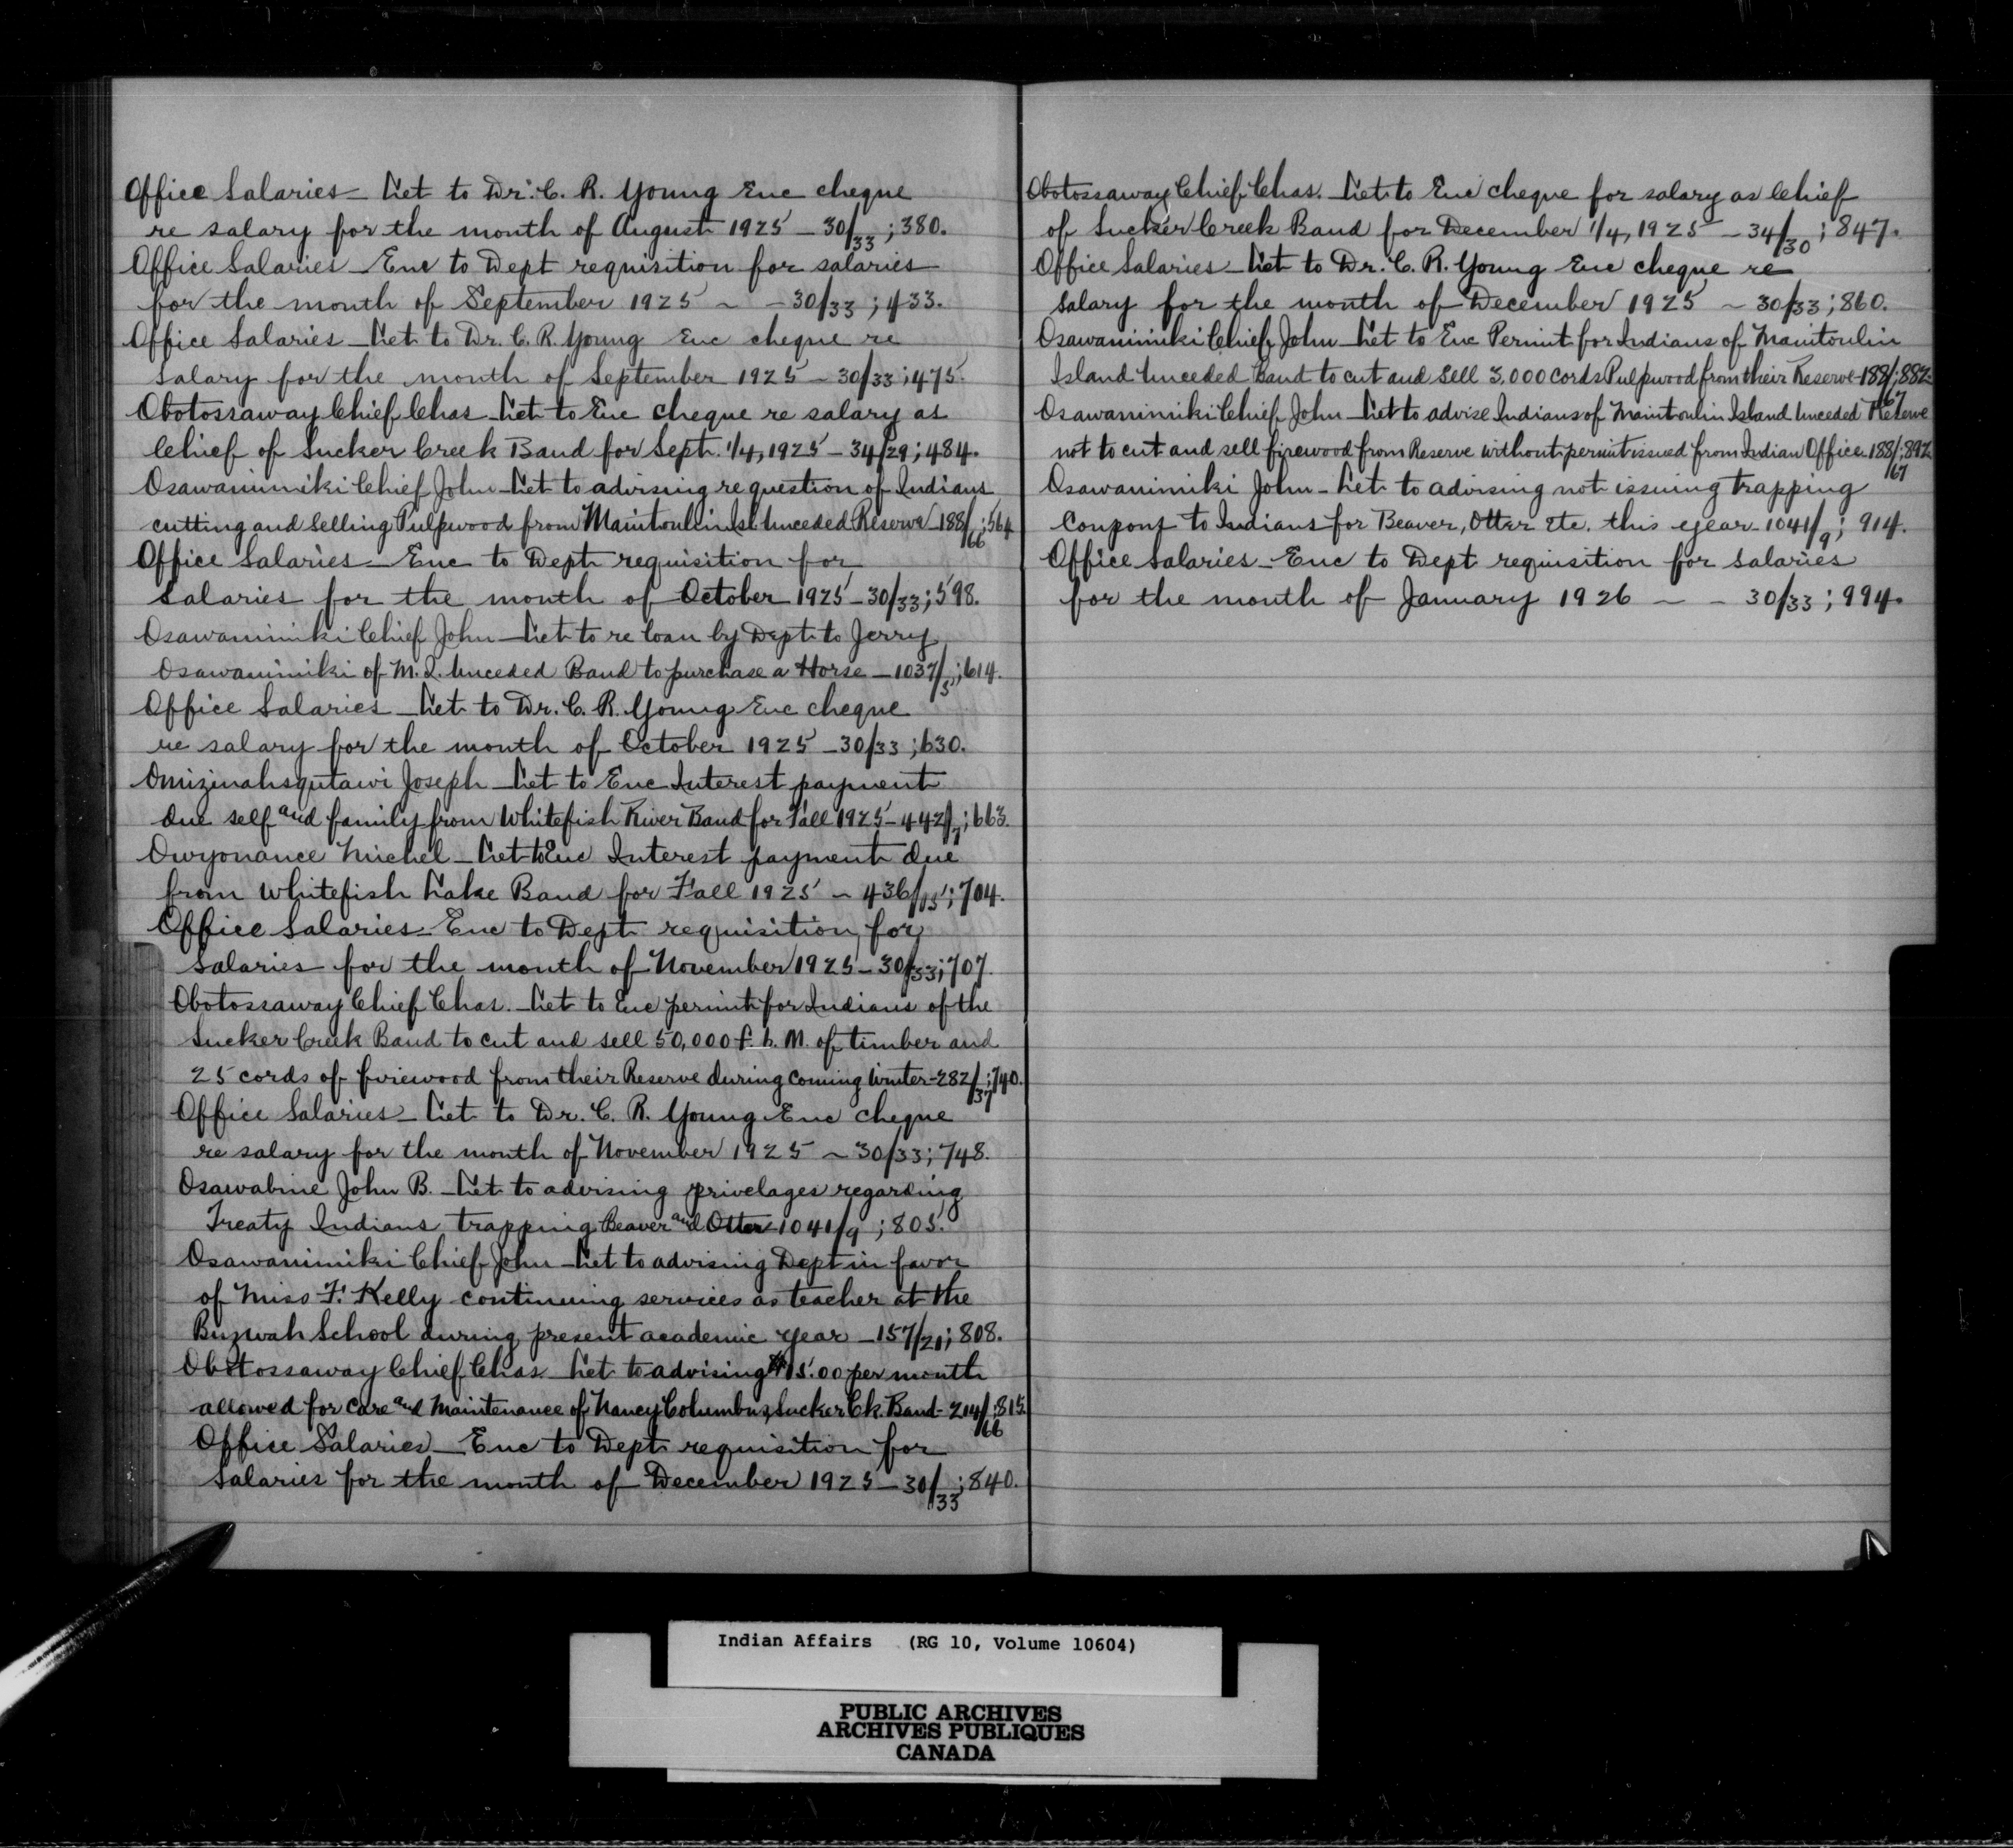 Office Salaries – Let to Dr. C. R. Young Enc cheque
re salary for the month of August 1925 – 30/33 ; 380.
Office Salaries – Enc to Dept requisition for salaries
for the month of September 1925 ~ – 30/33 ; 433.
Office Salaries – Let to Dr. C. R. Young Enc cheque re
salary for the month of September 1925 – 30/33 ; 475.
Obotossaway Chief Chas – Let to Enc cheque re salary as
Chief of Sucker Creek Band for Sept. 1/4, 1925 – 34/29 ; 484.
Osawanimiki Chief John – Let to advising re question of Indians
cutting and selling Pulpwood from Manitoulin Isl. Unceded Reserve – 188/66 ; 564
Office Salaries – Enc to Dept requisition for
salaries for the month of October 1925 – 30/33 ; 598.
Osawanimiki Chief John – Let to re loan by Dept to Jerry
Osawanimiki of M. I. Unceded Band to purchase a Horse – 1037/5 ; 614.
Office Salaries – Let to Dr. C. R. Young Enc cheque
re salary for the month of October 1925 – 30/33 ; 630.
Omizinahsqutawi Joseph – Let to Enc Interest payment
due self and family from Whitefish River Band for Fall 1925 – 442/7 ; 663.
Owyonance Michel – Let to Enc Interest payment due
from Whitefish Lake Band for Fall 1925 ~ 436/15 ; 704.
Office Salaries – Enc to Dept requisition for
salaries for the month of November 1925 – 30/33 ; 707.
Obotossaway Chief Chas. – Let to Enc permit for Indians of the
Sucker Creek Band to cut and sell 50,000 f. b. M. of timber and
25 cords of firewood from their Reserve during coming Winter – 282/37 ; 740.
Office Salaries – Let to Dr. C. R. Young Enc cheque
re salary for the month of November 1925 ~ 30/33 ; 748.
Osawabine John B. – Let to advising privelages regarding
Treaty Indians trapping Beaver and Otter – 1041/9 ; 805.
Osawanimiki Chief John – Let to advising Dept in favor
of Miss F. Kelly continuing services as teacher at the
Buzwah School during present academic year – 157/21 ; 808.
Obotossaway Chief Chas – Let to advising $15.00 per month
allowed for care and Maintenance of Nancy Columbus, Sucker Ck. Band – 214/66 ; 815.
Office Salaries – Enc to Dept requisition for
salaries for the month of December 1925 – 30/33 ; 840.
Obotossaway Chief Chas. – Let to Enc cheque for salary as Chief
of Sucker Creek Band for December 1/4, 1925 – 34/30 ; 847.
Office Salaries – Let to Dr. C. R. Young Enc cheque re
salary for the month of December 1925 ~ 30/33 ; 860.
Osawanimiki Chief John – Let to Enc Permit for Indians of Manitoulin
Island Unceded Band to cut and sell 3,000 cords Pulpwood from their Reserve – 188/67 ; 882
Osawanimiki Chief John – Let to advise Indians of Manitoulin Island Unceded Reserve
not to cut and sell firewood from Reserve without permit issued from Indian Office – 188/67 ; 892
Osawanimiki John – Let to advising not issuing trapping
Coupons to Indians for Beaver, Otter etc. this year – 1041/9 ; 914.
Office Salaries – Enc to Dept requisition for salaries
for the month of January 1926 – – 30/33 ; 994.
Indian Affairs (RG 10, Volume 10604)
PUBLIC ARCHIVES
ARCHIVES PUBLIQUES
CANADA